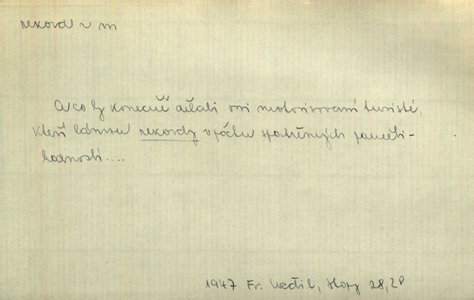 rekord ~ m
A co by konečně dělali oni motorisovaní turisté,
kteří lámou rekordy v počtu spatřených paměti-
hodností....
1947 Fr. Nečtil, Hory 28, 28